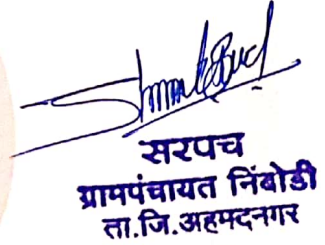 सरपच
ग्रामपंचायत निंबोडी
ता.जि.अहमदनगर